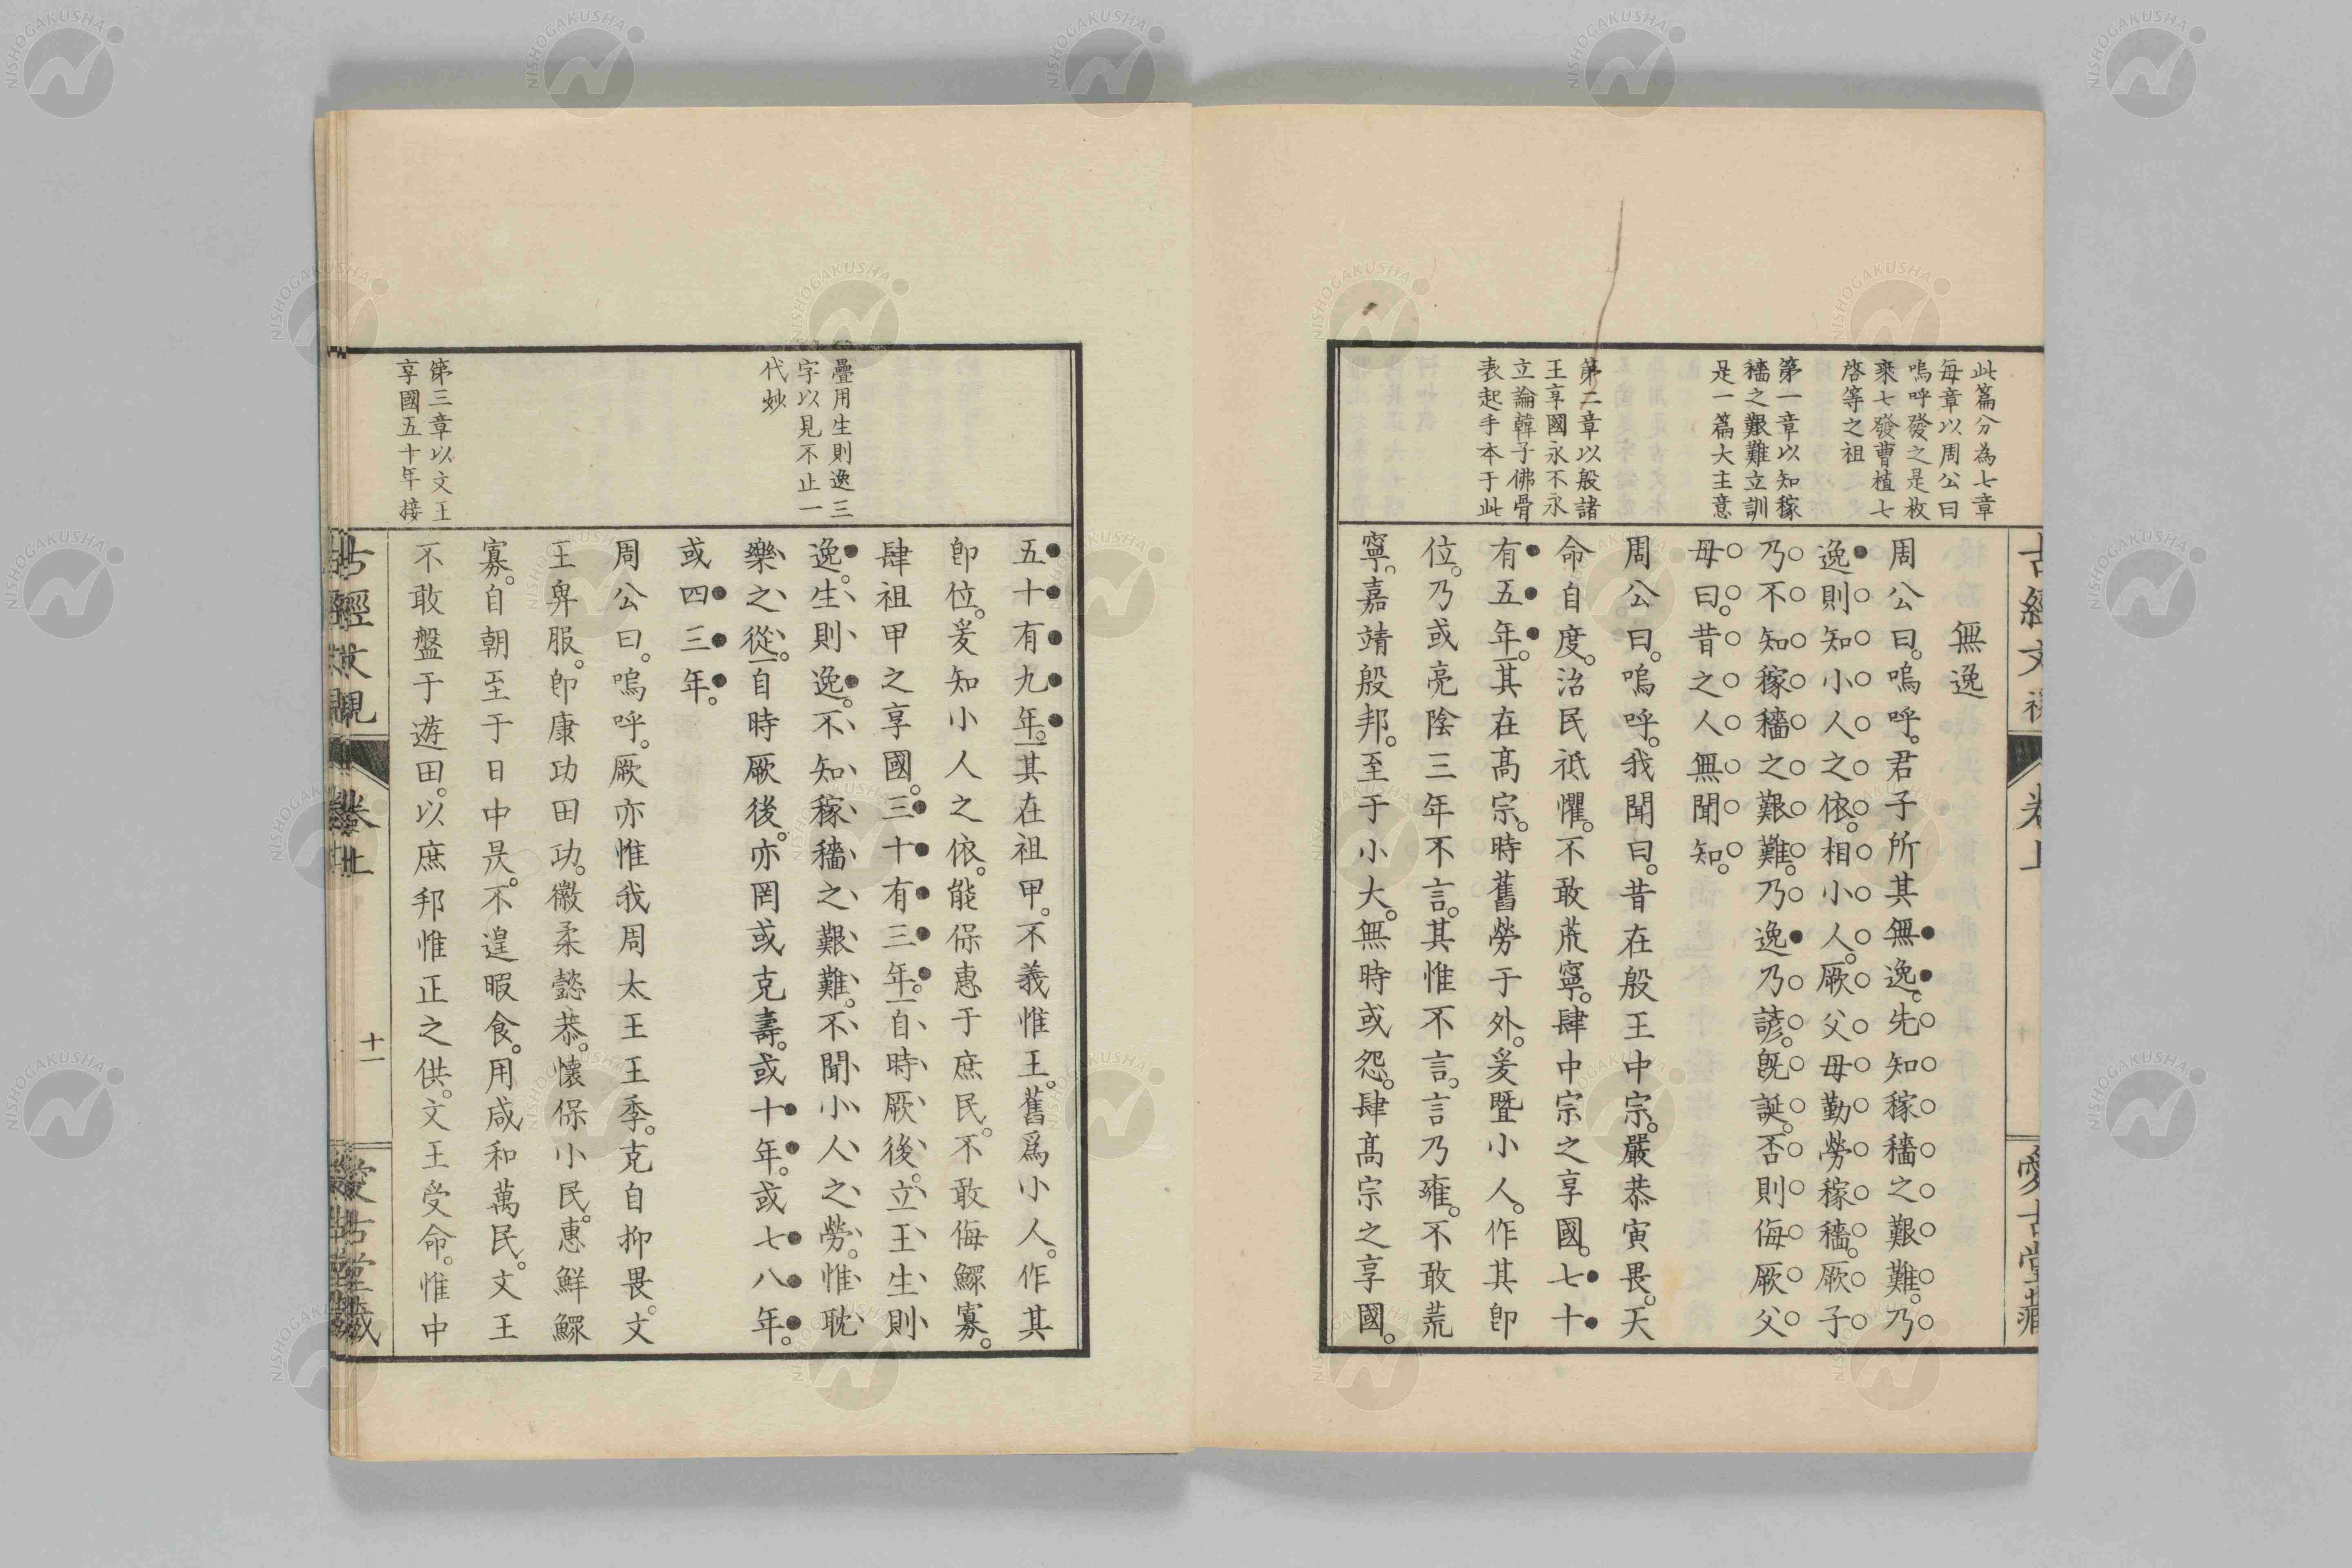 此篇分為七章
每章以周公曰
嗚呼發之是枚
乘七發曹植七
啓等之祖
第一章以知稼
穡之艱難立訓
是一篇大主意
第二章以殷諸
王享國永不永
立論韓子佛骨
表起手本于此
無逸
周公曰。嗚呼。君子所其無逸。先知稼穡之艱難。乃
逸則知小人之依。相小人。厥父母勤勞稼穡。厥子
乃不知稼穡之艱難。乃逸乃諺。既誕。否則侮厥父
母曰。昔之人無聞知。
周公曰。嗚呼。我聞曰。昔在殷王中宗。嚴恭寅畏。天
命自度。治民祗懼。不敢荒寧。肆中宗之享國。七十
有五年。其在高宗。時舊勞于外。爰曁小人。作其卽
位。乃或亮陰三年不言。其惟不言。言乃雍。不敢荒
寧。嘉靖殷邦。至于小大。無時或怨。肆高宗之享國。
疊用生則逸三
字以見不止一
代妙
第三章以文王
享國五十年接
五十有九年。其在祖甲。不義惟王。舊爲小人。作其
卽位。爰知小人之依。能保惠于庶民。不敢侮鰥寡。
肆祖甲之享國。三十有三年。自時厥後。立王生則
逸。生則逸。不知稼穡之艱難。不聞小人之勞。惟耽
樂之從。自時厥後。亦罔或克壽。或十年。或七八年。
或四三年。
周公曰。嗚呼。厥亦惟我周太王王季。克自抑畏。文
王卑服。卽康功田功。徽柔懿恭。懷保小民。惠鮮鰥
寡。自朝至于日中昃。不遑暇食。用咸和萬民。文王
不敢盤于遊田。以庶邦惟正之供。文王受命。惟中
古經文視 卷上 十一 愛古堂藏
NISHOGAKUSHA